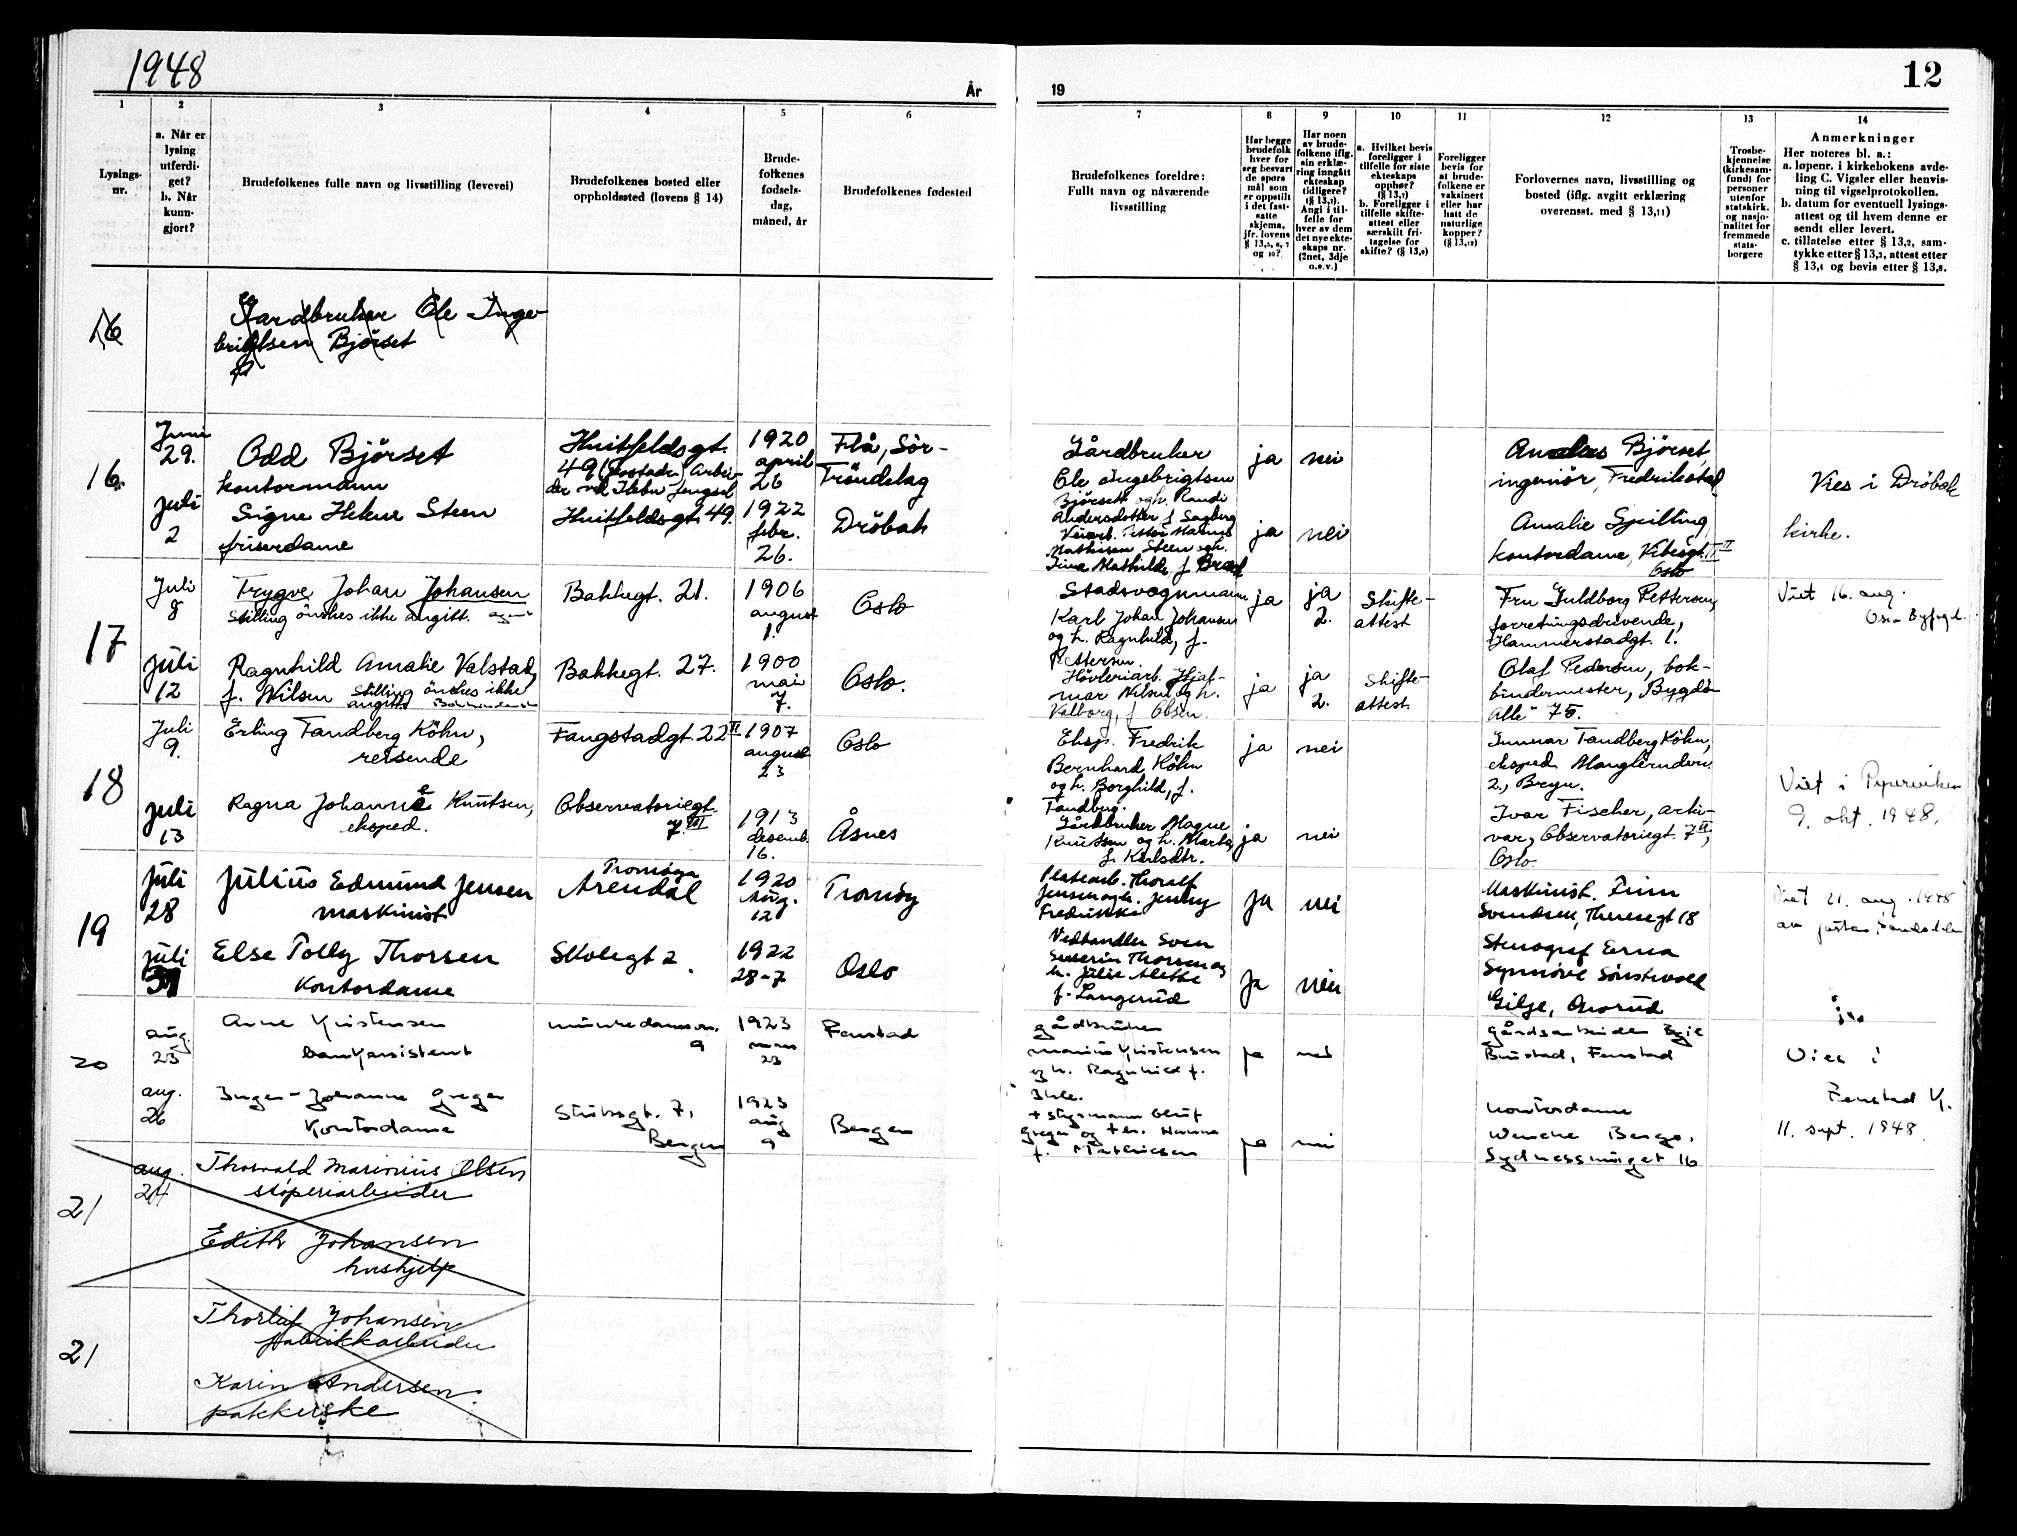 1948
År
19
12
1
2
3
4
5
6
7
8
9
10
11
12
13
14
Lysings-
nr.
a. Når er
lysing
utferdi-
get?
b. Når
kunn-
gjort?
Brudefolkenes fulle navn og livsstilling (levevei)
Brudefolkenes bosted eller
oppholdssted (lovens § 14)
Brude-
folkenes
fødsels-
dag,
måned, år
Brudefolkenes fødested
Brudefolkenes foreldre:
Fullt navn og nåværende
livsstilling
Har begge
brudefolk
hver for
seg besvart
de spørs
mål som
er oppstilt
i det fast-
satte
skjema,
jfr. lovens
§ 13,5, 6, 7
og 10?
Har noen
av brude-
folkene iflg.
sin erklæ-
ring inngått
ekteskap
tidligere?
(§ 13,7)
Angi i til-
felle for
hver av dem
det nye ekte-
skaps nr.
(2net, 3dje
o.s.v.)
a. Hvilket bevis
foreligger i
tilfelle for siste
ekteskaps
opphør?
(§ 13,7)
b. Foreligger i
tilfelle skifte-
attest eller
særskilt fri-
tagelse for
skifte? (§ 13,9)
Foreligger
bevis for
at brude-
folkene er
vaksinert
eller har
hatt de
naturlige
kopper?
(§ 13,12)
Forlovernes navn, livsstilling og
bosted (iflg. avgitt erklæring
overensst. med § 13,11)
Trosbe-
kjennelse
(kirkesam-
fund) for
personer
utenfor
statskirk.
og nasjo-
nalitet for
fremmede
stats-
borgere
Anmerkninger
Her noteres bl. a.:
a. løpenr. i kirkebokens avde-
ling C. Vigsler eller henvis-
ning til vigselprotokollen.
b. datum for eventuell lysings-
attest og til hvem denne er
sendt eller levert.
c. tillatelse etter § 13,2, sam-
tykke etter § 13,3, attest etter
§ 13,4 og bevis etter § 13,8.
16
Gardbruker Ole Inge-
brigtsen Bjørset
16.
Juni
29.
Odd Bjørset
kontormann
Huitfeldsgt.
49
1920
april
26
Flå, Sør-
Trøndelag
Gårdbruker
Ole Ingebrigtsen
Bjørset og h. Randi
Andersdotter f. Sagberg
ja
nei
Bjørset,
ingeniør, Fredrikstad
Vies i Drøbak
kirke.
juli
2
Signe Helene Steen
frisørdame
Huitfeldsgt. 49.
1922
febr.
26.
Drøbak
Mathisen Steen og h.
Tina Mathilde f.
ja
nei
Amalie Spilling,
kontordame, Vibesgt.
Oslo
17
Juli
8
Trygve Johan Johansen
Stilling ønskes ikke angitt.
Bakkegt. 21.
1906
august
1.
Oslo
Stadsvognmann
Karl Johan Johansen
og h. Ragnhild, f.
Pettersen.
ja
ja
2.
Skifte-
attest
Fru Guldborg Pettersen,
forretningsdrivende,
Hammerstadgt. 1.
Viet 16. aug.
Oslo Byfogd.
juli
12
Ragnhild Amalie Valstad,
f. Nilsen Stilling ønskes ikke
angitt
Bakkegt. 27.
1900
mai
7.
Oslo.
Høvleriarb. Hjal-
mar Nilsen og h.
Valborg, f. Olsen.
ja
ja
2.
Skifte-
attest.
Olaf Pedersen, bok-
bindermester, Bygdø
Alle 75.
18
Juli
9.
Erling Tandberg Köhn,
reisende
Fangstadgt. 22 II
1907
august
23
Oslo
Eksp. Fredrik
Bernhard Köhn
og h. Borghild, f.
Tandberg.
ja
nei
Gunnar Tandberg Köhn,
eksped. Manglerudvn.
2., Bryn.
Viet i Pipervikn
9. okt. 1948.
juli
13
Ragna Johanne Knutsen,
eksped.
Observatoriegt.
7 III
1913
desemb.
16.
Åsnes
Gårdbruker Magne
Knutsen og h. Marta,
f. Karlsdtr.
ja
nei
Ivar Fischer, arki-
var, Observatoriegt. 7 III,
Oslo.
19
juli
28
Julius Edmund Jensen
maskinist
Tromøya
Arendal
1920
Aug.
12
Tromøy
Platearb. Thoralf
Jensen og h. Jenny
Fredrikke
ja
nei
Maskinist. Finn
Svendsen, Theresegt 18
Viet 21. aug. 1948
juli
31
Else Polly Thorsen
Kontordame
Skolegt 2.
1922
28-7
Oslo
Vedhandler Sven
Severin Thorsen og
h. Julie Alethe
f. Langerud
ja
nei
Stenograf Erna
Synnöve Sönstevold
Gilje, Östrud
20
aug.
23
Arne Kristensen
bankassistent
Munkedamsvn.
9
1923
mars
23
Fenstad
gårdbruker
Marius Kristensen
og h. Ragnhild f.
Ihle.
ja
nei
gårdsarbeider Egil
Bustad, Fenstad
Vies i
Fenstad k.
11. sept. 1948.
aug.
26
Inger-Johanne Greger
Kontordame
Strøbsgt. 7,
Bergen
1923
aug
9
Bergen
+ styrmann Oluf
Greger og + h. Hanna
f. Mathiesen
ja
nei
Kontordame
Wenche Berge.
Sydnessmuget 16
21
aug.
24
Thorvald Marinius Olsen
støperiarbeider
Edith Johansen
hushjelp
21
Thorleif Johansen
fabrikkarbeider
Karin Andersen
pakkerske